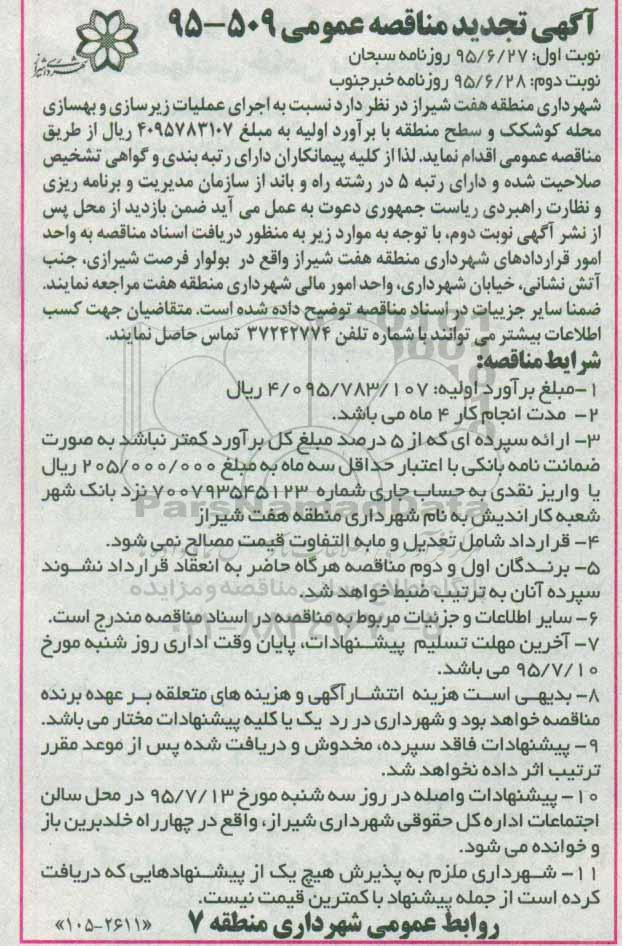 آگهی تجدید مناقصه عمومی ۵۰۹-۹۵
نوبت اول: ۹۵/۶/۲۷ روزنامه سبحان
نوبت دوم: ۹۵/۶/۲۸ روزنامه خبرجنوب
شهرداری منطقه هفت شیراز در نظر دارد نسبت به اجرای عملیات زیرسازی و بهسازی
محله کوشکک و سطح منطقه با برآورد اولیه به مبلغ ۴۰۹۵۷۸۳۱۰۷ ریال از طریق
مناقصه عمومی اقدام نماید. لذا از کلیه پیمانکاران دارای رتبه بندی و گواهی تشخیص
صلاحیت شده و دارای رتبه ۵ در رشته راه و باند از سازمان مدیریت و برنامه ریزی
و نظارت راهبردی ریاست جمهوری دعوت به عمل می آید ضمن بازدید از محل پس
از نشر آگهی نوبت دوم، با توجه به موارد زیر به منظور دریافت اسناد مناقصه به واحد
امور قراردادهای شهرداری منطقه هفت شیراز واقع در بولوار فرصت شیرازی، جنب
آتش نشانی، خیابان شهرداری، واحد امور مالی شهرداری منطقه هفت مراجعه نمایند.
ضمنا سایر جزییات در اسناد مناقصه توضیح داده شده است. متقاضیان جهت کسب
اطلاعات بیشتر می توانند با شماره تلفن ۳۷۲۴۲۷۷۴ تماس حاصل نمایند.
شرایط مناقصه:
۱-مبلغ برآورد اولیه: ۴/۰۹۵/۷۸۳/۱۰۷ ریال
۲- مدت انجام کار ۴ ماه می باشد.
۳- ارائه سپرده ای که از ۵ درصد مبلغ کل برآورد کمتر نباشد به صورت
ضمانت نامه بانکی با اعتبار حداقل سه ماه به مبلغ ۲۰۵/۰۰۰/۰۰۰ ریال
یا واریز نقدی به حساب جاری شماره ۷۰۰۷۹۳۵۴۵۱۲۳ نزد بانک شهر
شعبه کاراندیش به نام شهرداری منطقه هفت شیراز
۴- قرارداد شامل تعدیل و مابه التفاوت قیمت مصالح نمی شود.
۵- برندگان اول و دوم مناقصه هرگاه حاضر به انعقاد قرارداد نشوند
سپرده آنان به ترتیب ضبط خواهد شد.
۶- سایر اطلاعات و جزئیات مربوط به مناقصه در اسناد مناقصه مندرج است.
۷- آخرین مهلت تسلیم پیشنهادات، پایان وقت اداری روز شنبه مورخ
۹۵/۷/۱۰ می باشد.
۸- بدیهی است هزینه انتشارآگهی و هزینه های متعلقه بر عهده برنده
مناقصه خواهد بود و شهرداری در رد یک یا کلیه پیشنهادات مختار می باشد.
۹- پیشنهادات فاقد سپرده، مخدوش و دریافت شده پس از موعد مقرر
ترتیب اثر داده نخواهد شد.
۱۰- پیشنهادات واصله در روز سه شنبه مورخ ۹۵/۷/۱۳ در محل سالن
اجتماعات اداره کل حقوقی شهرداری شیراز، واقع در چهارراه خلدبرین باز
و خوانده می شود.
۱۱- شهرداری ملزم به پذیرش هیچ یک از پیشنهادهایی که دریافت
کرده است از جمله پیشنهاد با کمترین قیمت نیست.
روابط عمومی شهرداری منطقه ۷ «۱۰۵-۲۶۱۱»
شهرداری شیراز
ParsNamadData